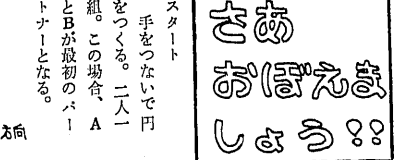 さあ
おぼえま
しょう!!
スタート
手をつないで円
をつくる。二人一
組。この場合、A
とBが最初のパー
トナーとなる。
方向